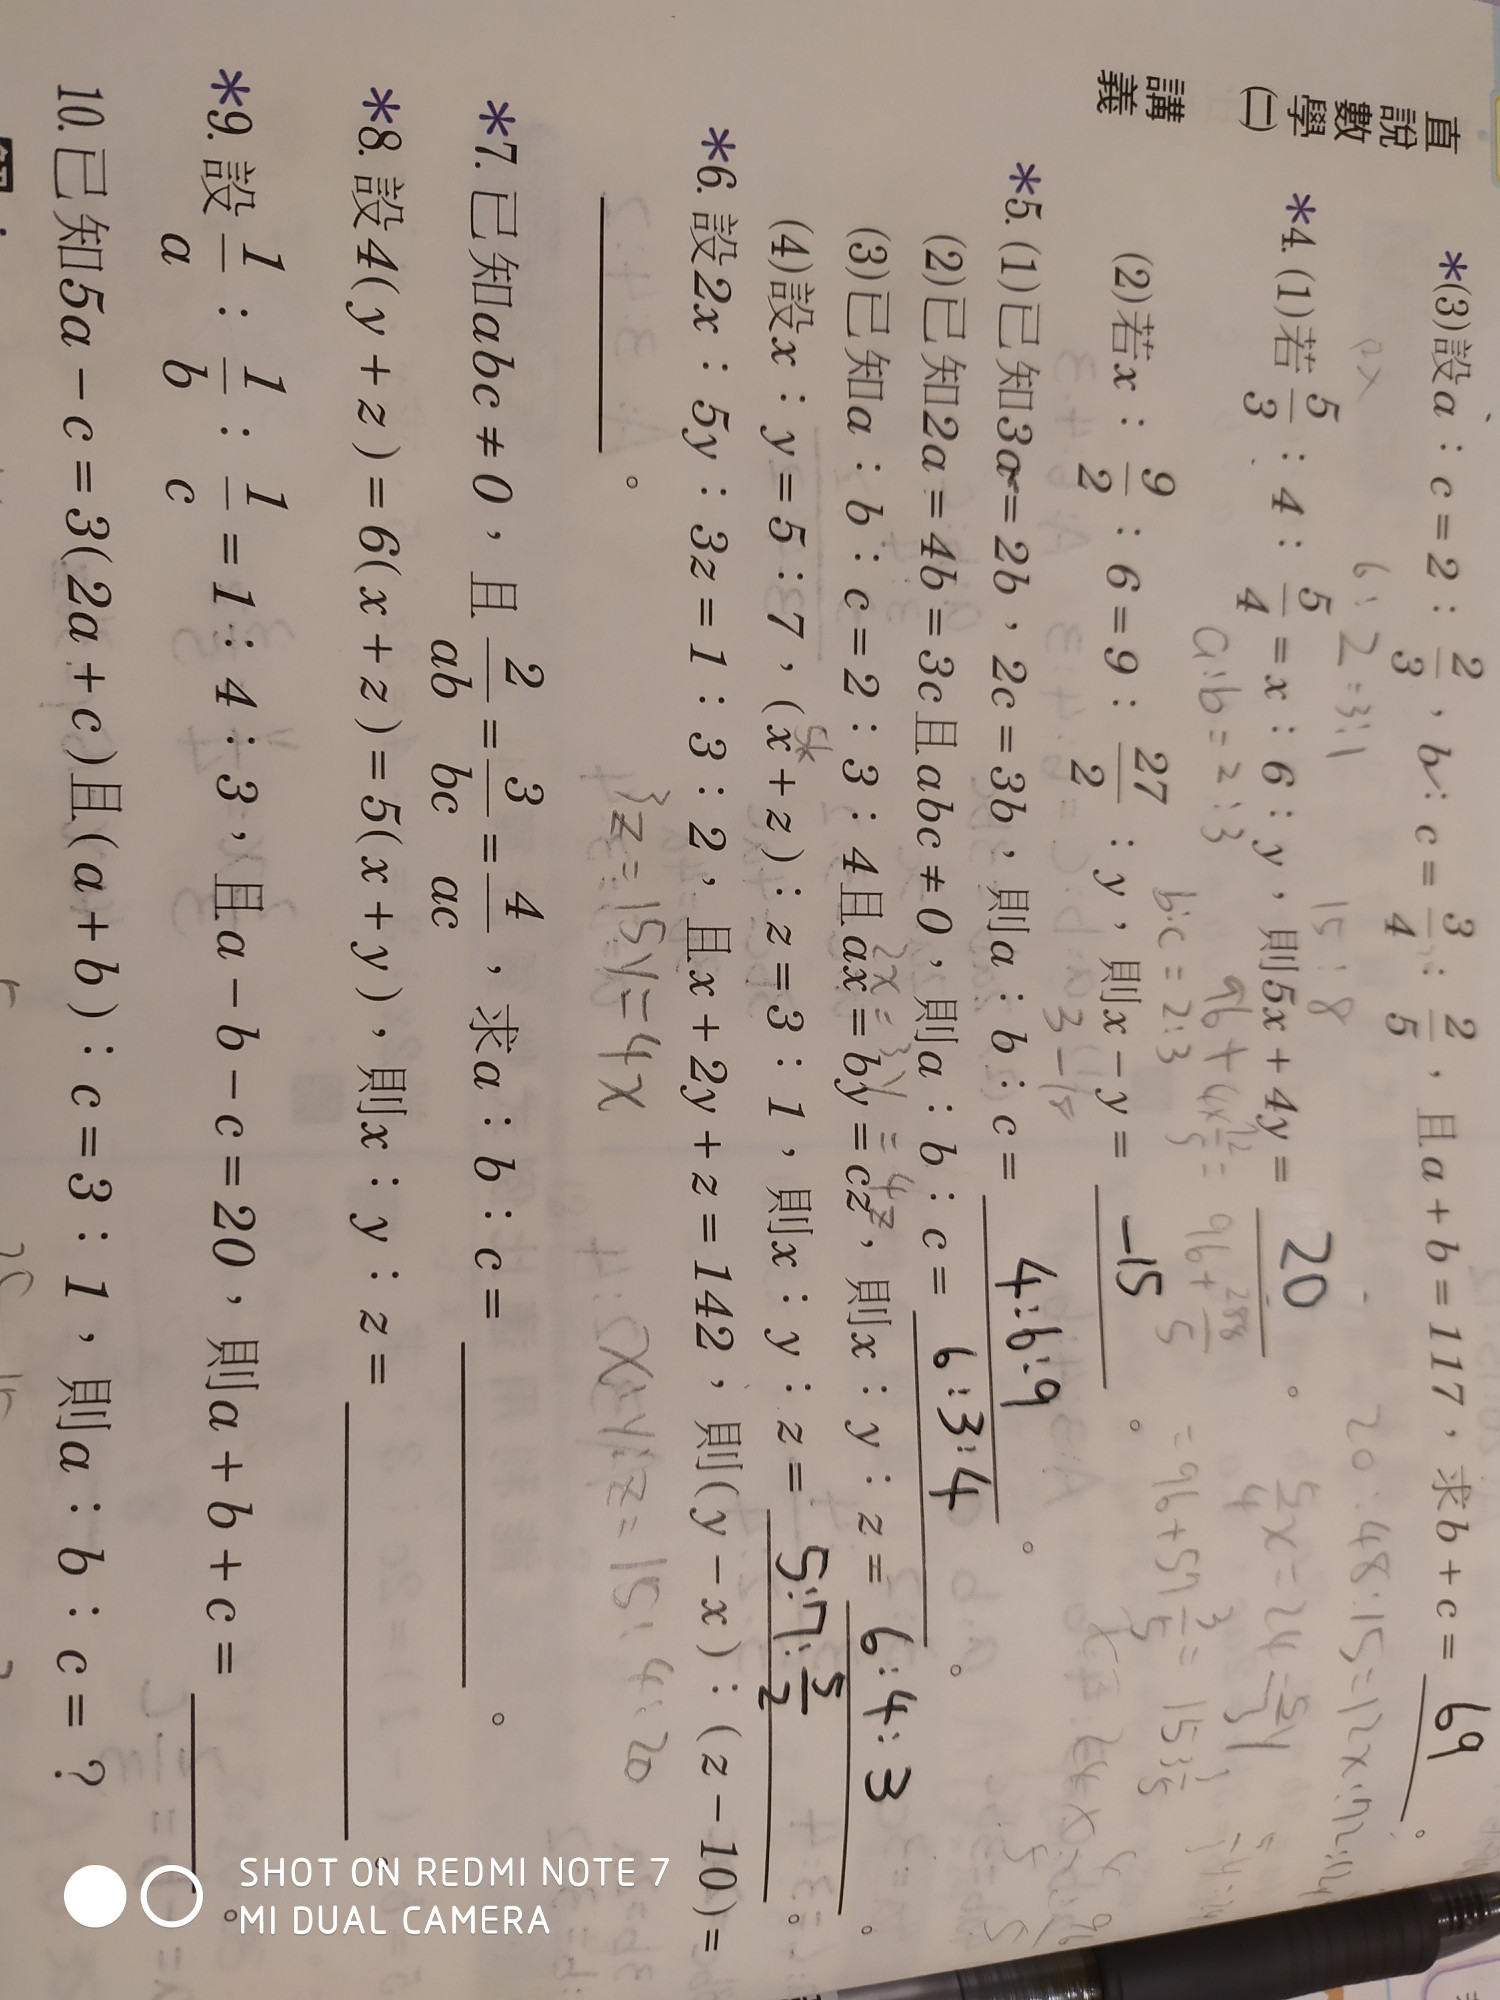 直說數學(二)
講義
*(3)設a：c=2：2/3，b：c=3/4：2/5，且a+b=117，求b+c= 69 。
6：2=3：1
15：8
20：48：15=12x：
*4.(1)若5/3：4：5/4=x：6：y，則5x+4y= 20 。
a:b=2:3
b:c=2:3
(2)若x：9/2：6=9：27/2：y，則x-y= -15 。
*5.(1)已知3a=2b，2c=3b，則a：b：c= 4:6:9 。
(2)已知2a=4b=3c且abc≠0，則a：b：c= 6:3:4 。
2x=3y=4z
(3)已知a：b：c=2：3：4且ax=by=cz，則x：y：z= 6:4:3 。
(4)設x：y=5：7，(x+z)：z=3：1，則x：y：z= 5:7:5/2 。
*6.設2x：5y：3z=1：3：2，且x+2y+z=142，則(y-x)：(z-10)=
。
3z=15y=4x
x:y:z=15:4:20
*7.已知abc≠0，且2/ab=3/bc=4/ac，求a：b：c= 。
*8.設4(y+z)=6(x+z)=5(x+y)，則x：y：z= 。
*9.設1/a：1/b：1/c=1：4：3，且a-b-c=20，則a+b+c= 。
10.已知5a-c=3(2a+c)且(a+b)：c=3：1，則a：b：c=？
SHOT ON REDMI NOTE 7
MI DUAL CAMERA